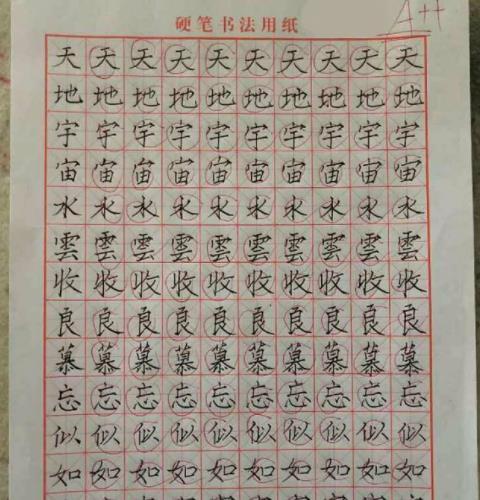 硬笔书法用纸
A++
天天天天天天天天天天
地地地地地地地地地地
宇宇宇宇宇宇宇宇宇宇
宙宙宙宙宙宙宙宙宙宙
水水水水水水水水水水
雲雲雲雲雲雲雲雲雲雲
收收收收收收收收收收
良良良良良良良良良良
慕慕慕慕慕慕慕慕慕慕
忘忘忘忘忘忘忘忘忘忘
似似似似似似似似似似
如如如如如如如如如如